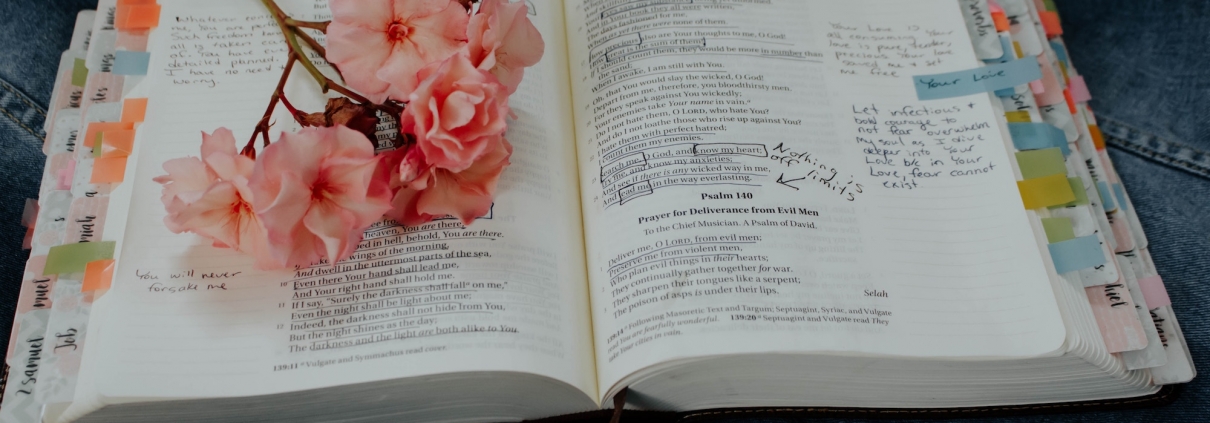 Whatever
me, You are
Such freedom
all is taken
as You have
detailed planned.
I have no need to
worry.
You will never
forsake me
You are there;
in hell, behold, You are there.
wings of the morning,
And dwell in the uttermost parts of the sea,
10 Even there Your hand shall lead me,
And Your right hand shall hold me.
11 If I say, "Surely the darkness shall fall on me,"
Even the night shall be light about me;
12 Indeed, the darkness shall not hide from You,
But the night shines as the day;
The darkness and the light are both alike to You.
139:11 a Vulgate and Symmachus read cover
Your book they all were written,
fashioned for me,
When as yet there were none of them.
precious also are Your thoughts to me, O God!
is the sum of them!
If I should count them, they would be more in number than
the sand;
When I awake, I am still with You.
Oh, that You would slay the wicked, O God!
Depart from me, therefore, you bloodthirsty men.
For they speak against You wickedly;
Your enemies take Your name in vain.
Do I not hate them, O LORD, who hate You?
And do I not loathe those who rise up against You?
I hate them with perfect hatred;
I count them my enemies.
Search me, O God, and know my heart;
Try me, and know my anxieties;
And see if there is any wicked way in me,
And lead me in the way everlasting.
Nothing is
off limits
Psalm 140
Prayer for Deliverance from Evil Men
To the Chief Musician. A Psalm of David.
Deliver me, O LORD, from evil men;
Preserve me from violent men,
Who plan evil things in their hearts;
They continually gather together for war.
They sharpen their tongues like a serpent;
The poison of asps is under their lips.
Selah
139:14 a Following Masoretic Text and Targum; Septuagint, Syriac, and Vulgate
read You are fearfully wonderful. 139:20 a Septuagint and Vulgate read They
take Your cities in vain.
Your Love is
all consuming. Your
love is pure, tender,
precious. Your love
saved me & set
me free.
Your Love
Let infectious &
bold courage to
not fear overwhelm
my soul as I dive
deeper into Your
Love b/c in Your
Love, fear cannot
exist.
2 Samuel
Job